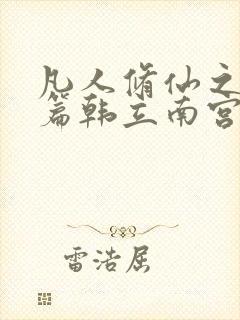 凡人脩仙之
篇韩立南宫
雷浩居